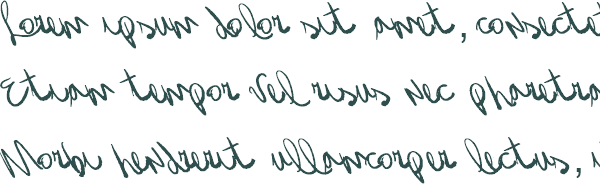 Lorem ipsum dolor sit amet, consectet
Etiam tempor vel risus nec pharetra
Morbi hendrerit ullamcorper lectus,